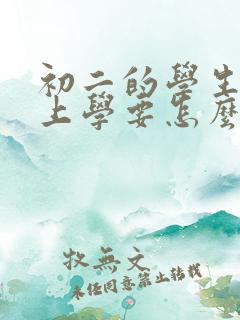 初二的學生
上學要怎麼
牧無文
未任同意禁止轉載